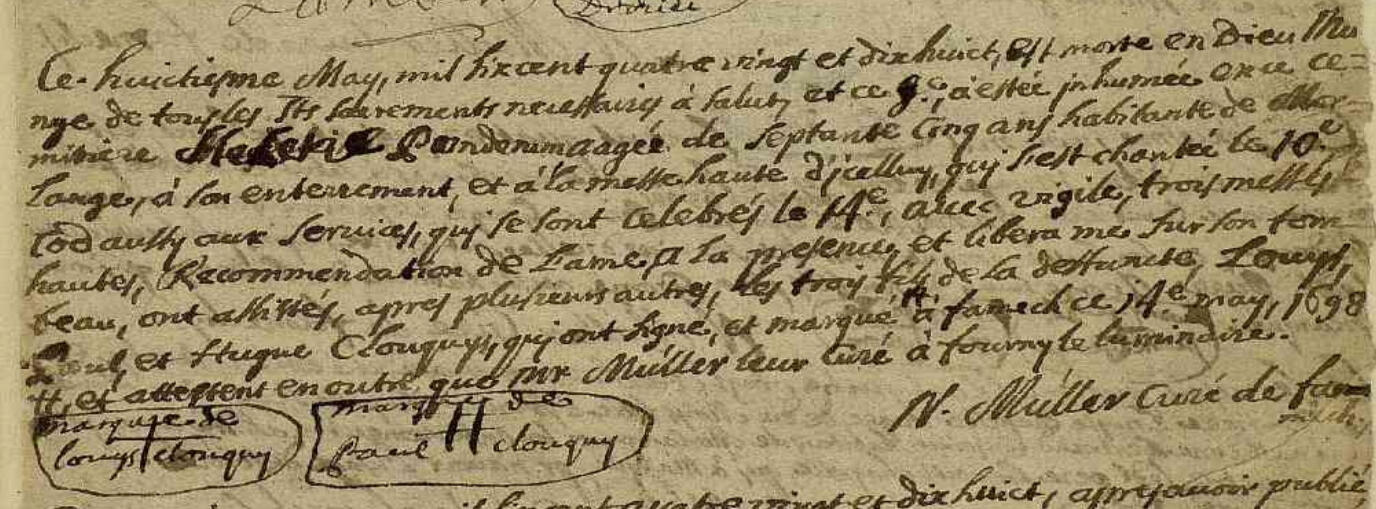 Druide
Ce huictiesme May, mil sixcent quatre vingt et dixhuict, est morte en Dieu Mu
nye de tous les Sts sacrements necessaires à salut, et ce 9.e, a estée jnhumée en ce ce=
mitiere agée de septante Cinq ans habitante de Mor=
lange, à son enterrement, et á la messe haute d'jcelluy, quj s'est chantée le 10.e
co͡e aussy aux services, quj se sont celebrés le 14.e, avec vigile, trois messes
hautes, Recommendation de Lame, A la presence, et libera me sur son tom
beau, ont assistés, apres plusieurs autres, les trois fils de la deffuncte, Louys,
Paul, et Hugue Clouquy, quj ont signé, et marqué à famech ce 14.e may, 1698
H, et attestent en outre que Mr Müller leur Curé à fourny le luminaire.
N. Müller Curé de fa=
mech.
marque de
louys clouquy
marque de
paul clouquy
quatre vingt et dixhuict, apres avoir publié,